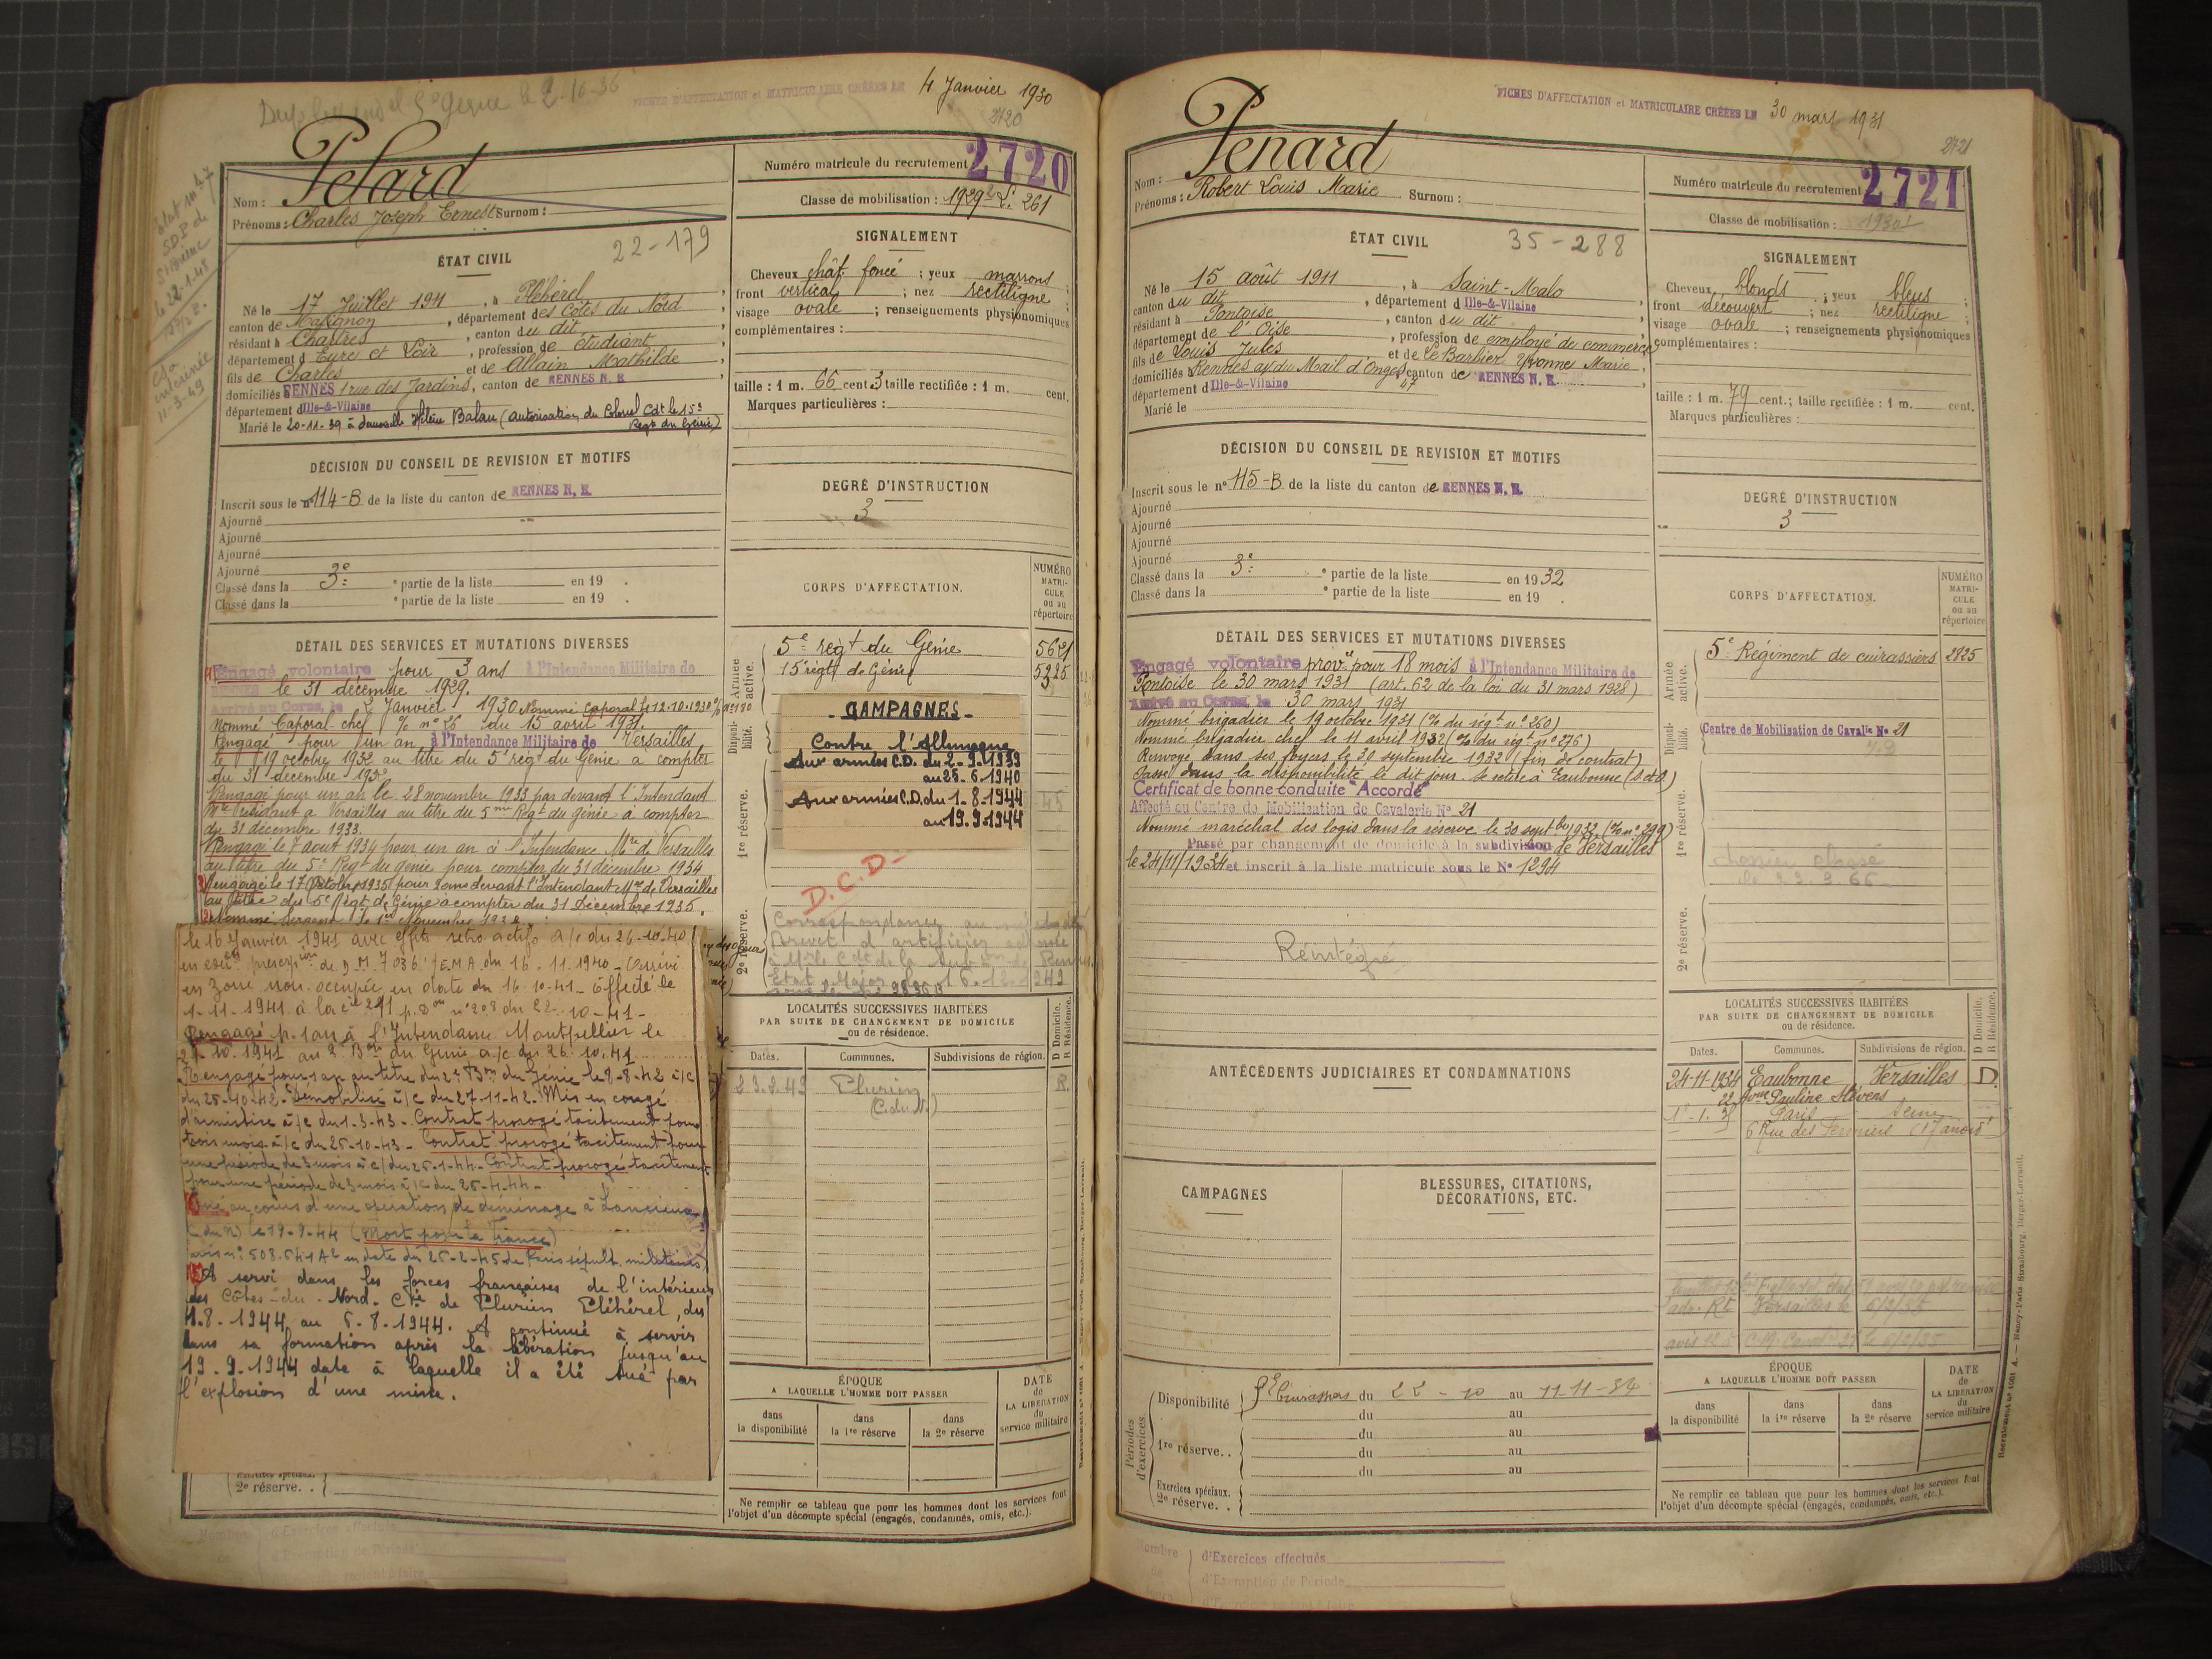 le 2-10-36
FICHES D'AFFECTATION et MATRICULAIRE CRÉÉES LE 4 Janvier 1930
2720
Nom : Pelard
Prénoms : Charles Joseph Ernest Surnom :
22-179
ÉTAT CIVIL
Né le 17 Juillet 1911, à Pléhérel,
canton de Matignon, département des Côtes du Nord
résidant à Chartres, canton du dit,
département d Eure et Loir, profession de étudiant
fils de Charles et de Allain Mathilde
domiciliés RENNES 1 rue des Jardins, canton de RENNES N. E.
département d Ille-&-Vilaine
Marié le 20-11-39 à demoiselle Hélène Balan (autorisation du Colonel Cdt le 15e
Regt du Génie)
DÉCISION DU CONSEIL DE REVISION ET MOTIFS
Inscrit sous le n° 114-B de la liste du canton de RENNES N. E.
Ajourné
Ajourné
Ajourné
Ajourné
Classé dans la 3e ° partie de la liste en 19 .
Classé dans la ° partie de la liste en 19 .
DÉTAIL DES SERVICES ET MUTATIONS DIVERSES
Engagé volontaire pour 3 ans à l'Intendance Militaire de
RENNES le 31 décembre 1929.
Arrivé au Corps, le 2 Janvier 1930 Nommé Caporal le 12.10.1930
Nommé Caporal chef % n° 76 du 15 avril 1931.
Rengagé pour un an à l'Intendance Militaire de Versailles
le 19 octobre 1932 au titre du 5e régt du Génie à compter
du 31 décembre 1932
Rengagé pour un an le 28 novembre 1933 par devant l'Intendant
Mre à Versailles au titre du 5me Régt du Génie à compter
du 31 décembre 1933.
Rengagé le 7 août 1934 pour un an à l'Intendance Mre de Versailles
au titre du 5e Régt du génie pour compter du 31 décembre 1934
Rengagé le 17 Octobre 1935 pour devant l'Intendant Mre de Versailles
au titre du 5e Régt de Génie à compter du 31 Décembre 1935.
Nommé Sergent le 1er Novembre
le 16 Janvier 1941 avec effet retro actif à/c du 26-10-40
de D.M. 7036 /EMA du 16-11-1940 - Arrivé
en zone non occupée en date du 16-10-41 - Affecté le
1-11-1941 à la Cie 291 p. Don n° 208 du 22-10-41 -
Rengagé p. 1 an à l'Intendance Montpellier le
21-10-1941 au 2e Bon du Génie à/c du 26.10.41
Rengagé pour 1 an au titre du 2e Bon du Génie le 8-8-42 à/c
du 25-10-42 - Démobilisé à/c du 27-11-42 - Mis en congé
d'armistice à/c du 1-3-43 - Contrat prorogé tacitement pour
trois mois à/c du 25-10-43 - Contrat prorogé tacitement pour
une période de 3 mois à c/ du 25-1-44 - Contrat prorogé tacitement
pour une période de 3 mois à/c du 25-4-44 -
Tué au cours d'une opération de déminage à Lancieux
(C. du N) le 19-9-44 (Mort pour la France)
avis n° 508.541 A2 en date du 26-2-45 de Paris sépult. militaires
A servi dans les forces françaises de l'intérieur
des Côtes-du-Nord - Cie de Plurien Pléhérel, du
1.8.1944 au 6.8.1944. A continué à servir
dans sa formation après la libération jusqu'au
19.9.1944 date à laquelle il a été tué par
l'explosion d'une mine.
Exercices spéciaux.
2e réserve. .
Numéro matricule du recrutement 2720
Classe de mobilisation : 1929
SIGNALEMENT
Cheveux chât. foncé ; yeux marrons ;
front vertical ; nez rectiligne ;
visage ovale ; renseignements physionomiques
complémentaires :
taille : 1 m. 66 cent. 3 taille rectifiée : 1 m. cent.
Marques particulières :
DEGRÉ D'INSTRUCTION
3
CORPS D'AFFECTATION.
NUMÉRO MATRICULE ou au répertoire
Armée active.
5e régt du Génie 5621
15e régt de Génie 5225
Disponibilité.
- CAMPAGNES -
Contre l'Allemagne
Aux armées C.D. du 2-9-1939
au 25.6.1940
Aux armées C.D. du 1-8-1944
au 19.9.1944
1re réserve.
D.C.D-
2e réserve.
LOCALITÉS SUCCESSIVES HABITÉES
PAR SUITE DE CHANGEMENT DE DOMICILE
ou de résidence.
D Domicile. R Résidence.
Dates. Communes. Subdivisions de région.
23.2.43 Plurien R.
(C. du N.)
ÉPOQUE
A LAQUELLE L'HOMME DOIT PASSER
DATE de LA LIBÉRATION du service militaire
dans la disponibilité dans la 1re réserve dans la 2e réserve
Ne remplir ce tableau que pour les hommes dont les services font
l'objet d'un décompte spécial (engagés, condamnés, omis, etc.).
FICHES D'AFFECTATION et MATRICULAIRE CRÉÉES LE 30 mars 1931
2721
Nom : Penard
Prénoms : Robert Louis Marie Surnom :
35-288
ÉTAT CIVIL
Né le 15 août 1911, à Saint-Malo
canton du dit, département d Ille-&-Vilaine,
résidant à Pontoise, canton du dit,
département de l'Oise, profession de employé de commerce
fils de Louis Jules et de Le Barbier Yvonne Marie,
domiciliés Rennes du Mail d'Onges canton de RENNES N. E.
département d Ille-&-Vilaine 47
Marié le
DÉCISION DU CONSEIL DE REVISION ET MOTIFS
Inscrit sous le n° 115-B de la liste du canton de RENNES N. E.
Ajourné
Ajourné
Ajourné
Ajourné
Classé dans la 3e ° partie de la liste en 1932
Classé dans la ° partie de la liste en 19 .
DÉTAIL DES SERVICES ET MUTATIONS DIVERSES
Engagé volontaire pour 18 mois à l'Intendance Militaire de
Pontoise le 30 mars 1931 (art. 62 de la loi du 31 mars 1928)
Arrivé au Corps, le 30 mars 1931
Nommé brigadier le 19 octobre 1931 (% du régt n° 260)
Nommé brigadier chef le 11 avril 1932 (% du régt n° 276)
Renvoyé dans ses foyers le 30 septembre 1932 (fin de contrat)
Passé dans la disponibilité le dit jour. Se retire à Eaubonne (S et O)
Certificat de bonne conduite "Accordé"
Affecté au Centre de Mobilisation de Cavalerie N° 21
Nommé maréchal des logis dans la réserve le 30 septbre 1932. (% n° 299)
Passé par changement de domicile à la subdivision de Versailles
le 24/11/1934 et inscrit à la liste matricule sous le N° 1294
Réintégré
ANTÉCÉDENTS JUDICIAIRES ET CONDAMNATIONS
CAMPAGNES
BLESSURES, CITATIONS,
DÉCORATIONS, ETC.
Périodes d'exercices.
Disponibilité Cuirassiers du 22-10 au 11-11-34
du au
1re réserve. . du au
du au
du au
Exercices spéciaux.
2e réserve. .
Numéro matricule du recrutement 2721
Classe de mobilisation : 1930
SIGNALEMENT
Cheveux blonds ; yeux bleus ;
front découvert ; nez rectiligne ;
visage ovale ; renseignements physionomiques
complémentaires :
taille : 1 m. 79 cent.; taille rectifiée : 1 m. cent.
Marques particulières :
DEGRÉ D'INSTRUCTION
3
CORPS D'AFFECTATION.
NUMÉRO MATRICULE ou au répertoire
Armée active.
5e Régiment de cuirassiers 2825
Disponibilité.
Centre de Mobilisation de Cavalie N° 21
1re réserve.
2e réserve.
LOCALITÉS SUCCESSIVES HABITÉES
PAR SUITE DE CHANGEMENT DE DOMICILE
ou de résidence.
D Domicile. R Résidence.
Dates. Communes. Subdivisions de région.
24-11-1934 Eaubonne Versailles D.
22 Avme Pauline Stévens
Paris Seine
6 Rue des
ÉPOQUE
A LAQUELLE L'HOMME DOIT PASSER
DATE de LA LIBÉRATION du service militaire
dans la disponibilité dans la 1re réserve dans la 2e réserve
Ne remplir ce tableau que pour les hommes dont les services font
l'objet d'un décompte spécial (engagés, condamnés, omis, etc.).
d'Exercices effectués
d'Exemption de Période